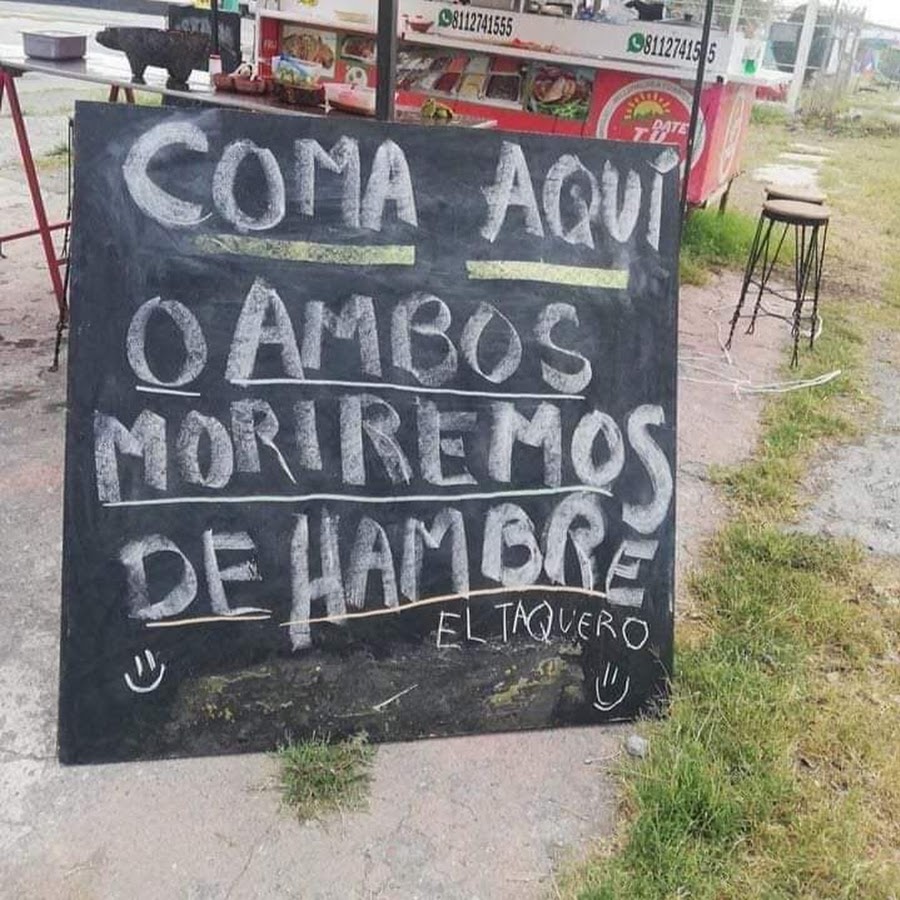 8112741555
8112741555
DATE
TU
COMA AQUÍ
O AMBOS
MORIREMOS
DE HAMBRE
EL TAQUERO